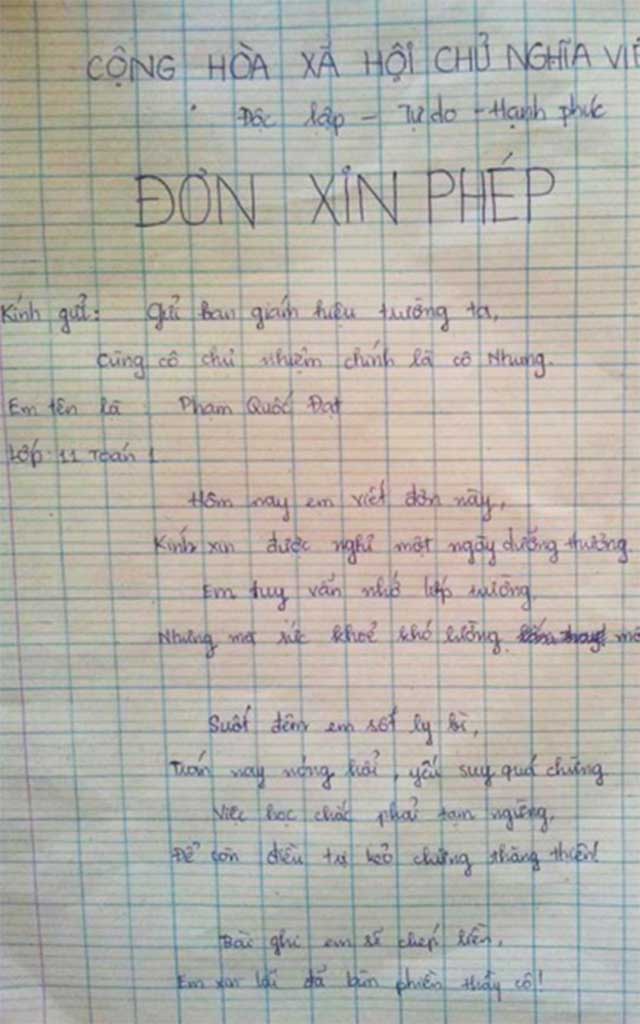 CỘNG HÒA XÃ HỘI CHỦ NGHĨA VIỆ
Độc lập - Tự do - Hạnh phúc
ĐƠN XIN PHÉP
Kính gửi: Gửi ban giám hiệu trường ta,
Cùng cô chủ nhiệm chính là cô Nhung.
Em tên là Phạm Quốc Đạt
Lớp: 11 Toán 1
Hôm nay em viết đơn này,
Kính xin được nghỉ một ngày dưỡng thương
Em tuy vẫn nhớ lớp trường,
Nhưng mà sức khoẻ khó lường
Suốt đêm em sốt ly bì,
Trán nay nóng hổi, yếu suy quá chừng
Việc học chắc phải tạm ngừng,
Để còn điều trị kẻo chừng thăng thiên!
Bài ghi em sẽ chép liền,
Em xin lỗi đã làm phiền thầy cô!